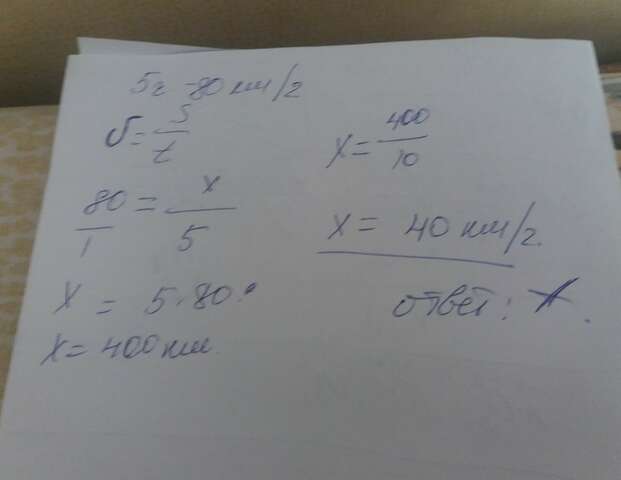 5ч - 80 км/ч
v = S/t
80/1 = x/5
x = 5·80
x = 400 км
x = 400/10
x = 40 км/ч.
ответ: